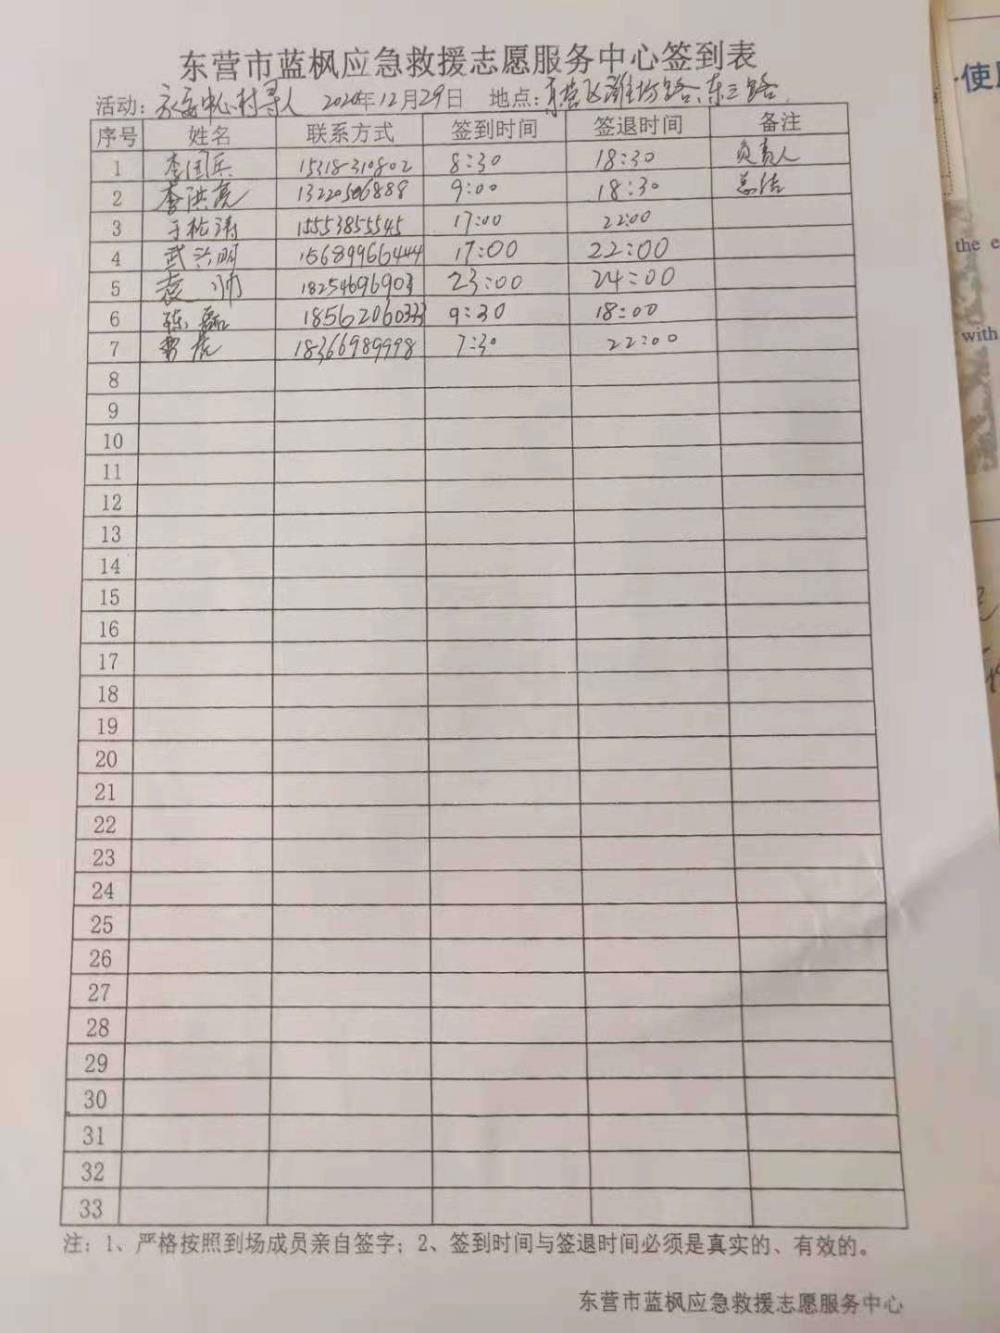 东营市蓝枫应急救援志愿服务中心签到表
活动: 永安中心村寻人 2020年12月29日 地点: 东营区潍坊路、东三路
序号 姓名 联系方式 签到时间 签退时间 备注
1 李国兵 15318310802 8:30 18:30 负责人
2 李洪亮 13220506888 9:00 18:30 总结
3 15553855545 17:00 22:00
4 武 明 15689966444 17:00 22:00
5 袁帅 18254696903 23:00 24:00
6 陈磊 18562060333 9:30 18:00
7 18366989998 7:30 22:00
8
9
10
11
12
13
14
15
16
17
18
19
20
21
22
23
24
25
26
27
28
29
30
31
32
33
注: 1、严格按照到场成员亲自签字; 2、签到时间与签退时间必须是真实的、有效的。
东营市蓝枫应急救援志愿服务中心
使
the e
with